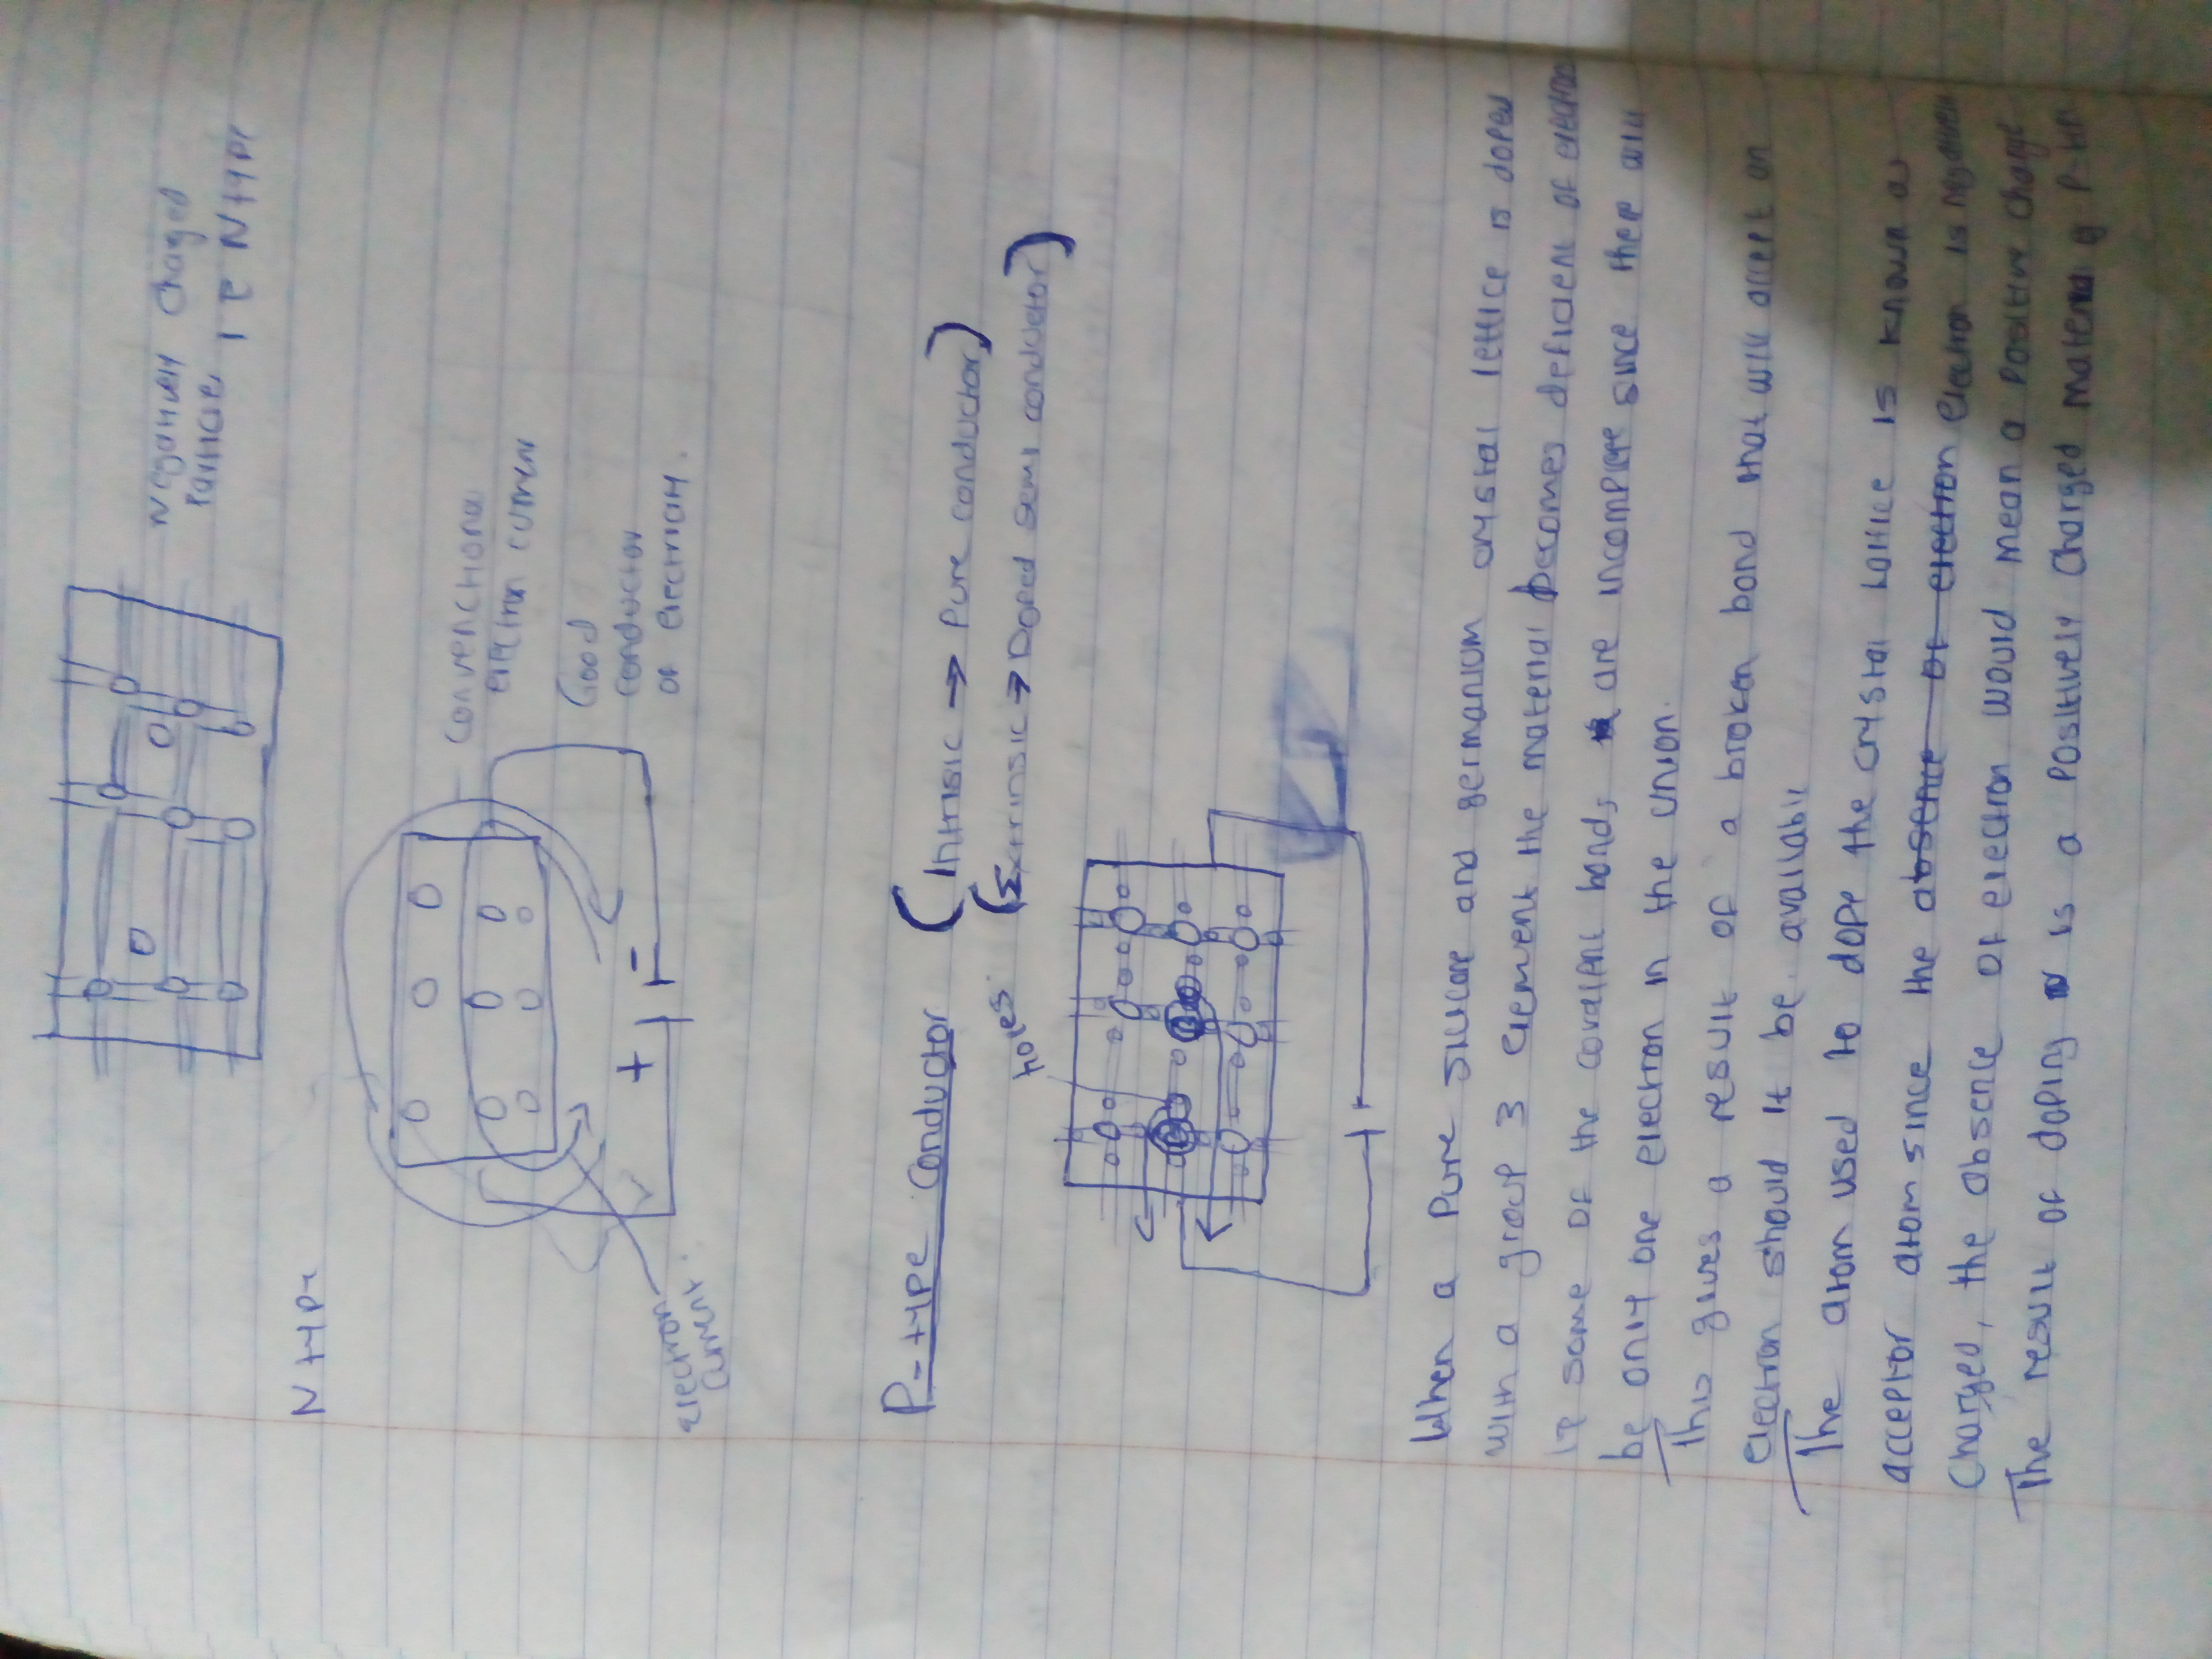 Negatively Charged
Particles i e N type
N type
Convenctional
electron current
Good
conductor
of electricity.
+ -
Electron
Current.
P-type conductor (Intrisic → Pure conductor)
holes (Extrinsic → Doped semi conductor)
When a Pure silicone and germanium crystal lettice is doped
with a group 3 element the material becomes deficient of electrons
ie some of the covalent bonds are incomplete since there will
be only one electron in the union.
This gives a result of a broken bond that will accept an
electron should it be available
The atom used to dope the crystal Lattice is known as
acceptor atom since the absence of electron electron is negatively
Charged, the absence of electron would mean a positive charge
The result of doping is a positively charged material P-type